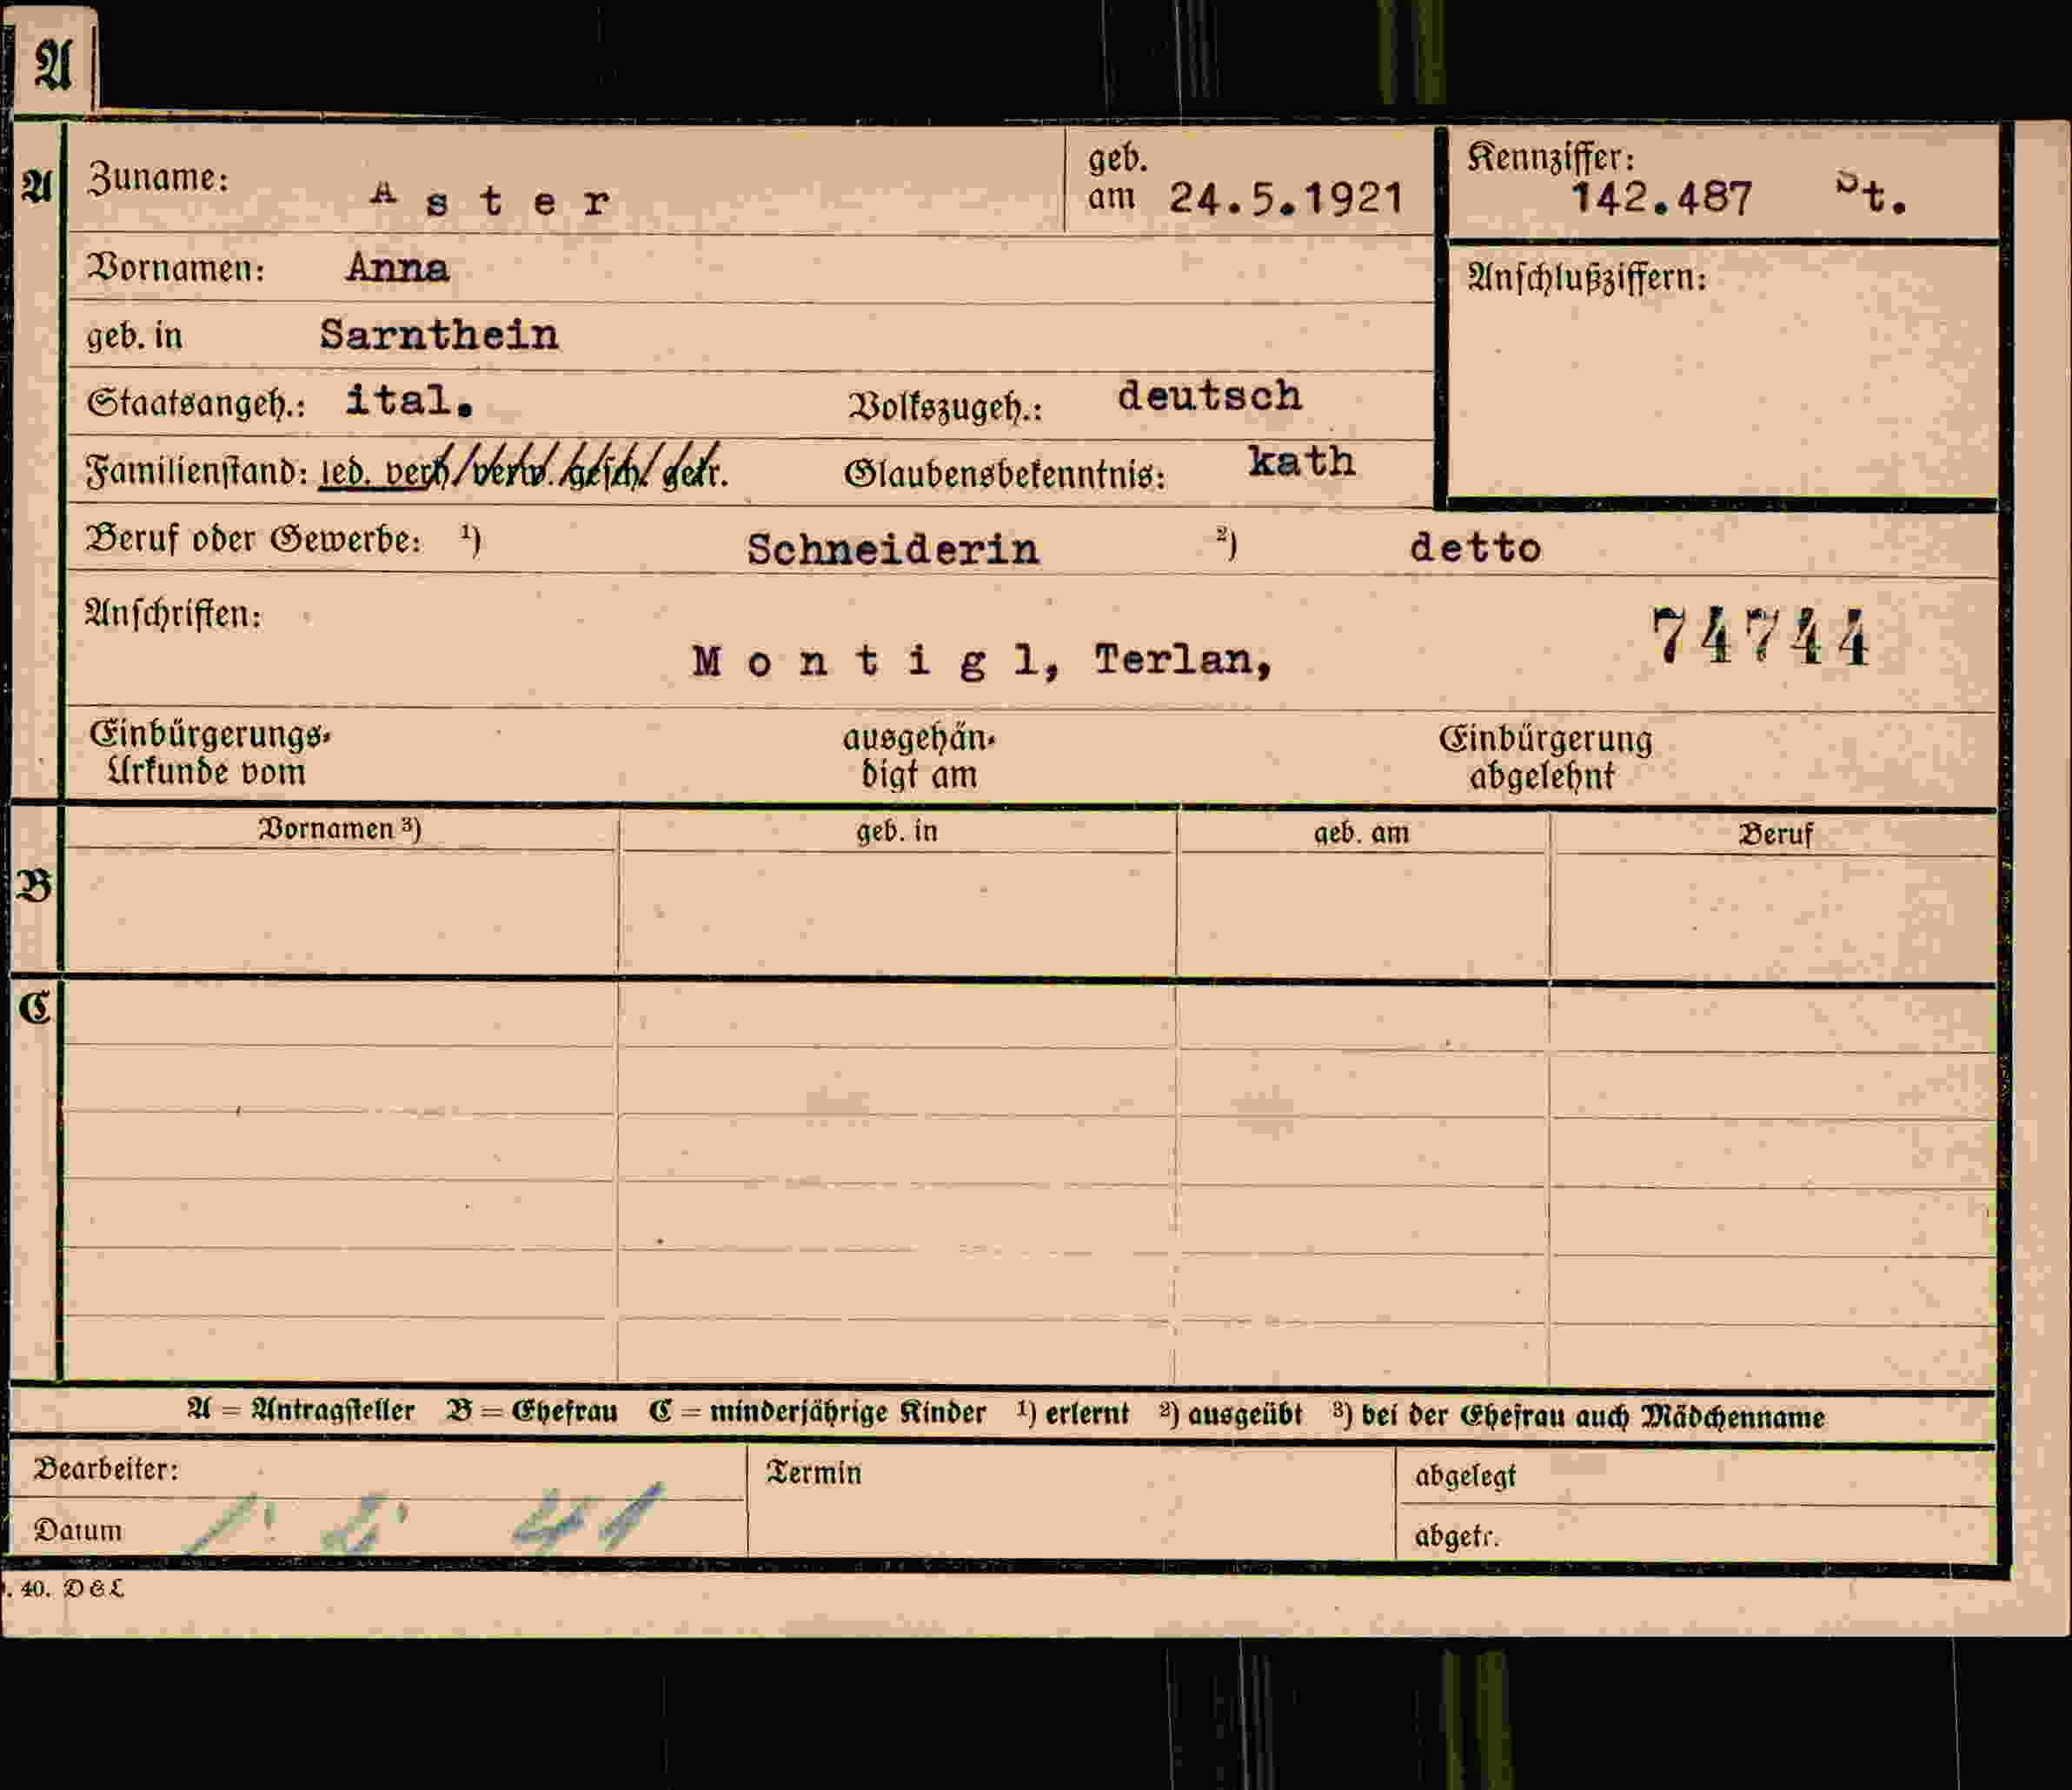 A
A Zuname: Aster geb. am 24.5.1921 Kennziffer: 142.487 St.
Vornamen: Anna Anschlußziffern:
geb. in Sarnthein
Staatsangeh.: ital. Volkszugeh.: deutsch
Familienstand: led. verh. verw. gesch. getr. Glaubensbekenntnis: kath
Beruf oder Gewerbe: 1) Schneiderin 2) detto
Anschriften: 74744
Montigl, Terlan,
Einbürgerungs- ausgehän- Einbürgerung
Urkunde vom digt am abgelehnt
Vornamen 3) geb. in geb. am Beruf
B
C
A = Antragsteller B = Ehefrau C = minderjährige Kinder 1) erlernt 2) ausgeübt 3) bei der Ehefrau auch Mädchenname
Bearbeiter: Termin abgelegt
Datum abgetr.
. 40. D & L